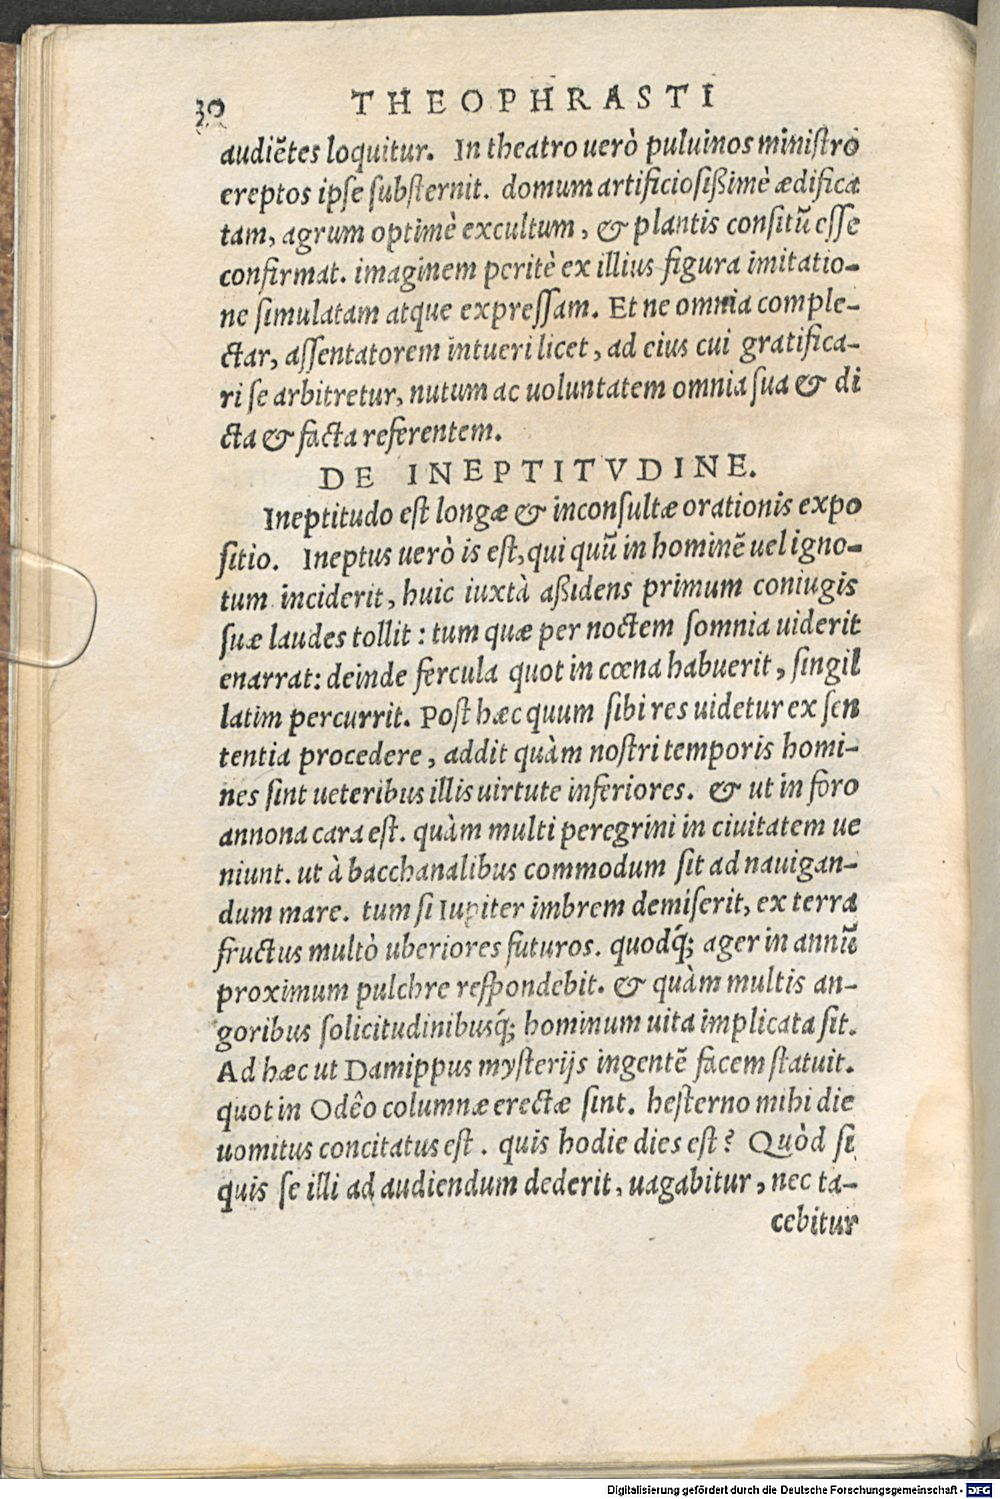 30 THEOPHRASTI
audiẽtes loquitur. In theatro uerò puluinos ministro
ereptos ipse substernit. domum artificiosißimè ædifica
tam, agrum optimè excultum, & plantis consitũ esse
confirmat. imaginem peritè ex illius figura imitatio-
ne simulatam atque expressam. Et ne omnia comple-
ctar, assentatorem intueri licet, ad eius cui gratifica-
ri se arbitretur, nutum ac uoluntatem omnia sua & di
cta & facta referentem.
DE INEPTITVDINE.
Ineptitudo est longæ & inconsultæ orationis expo
sitio. Ineptus uerò is est, qui quũ in hominẽ uel igno-
tum inciderit, huic iuxtà aßidens primum coniugis
suæ laudes tollit: tum quæ per noctem somnia uiderit
enarrat: deinde fercula quot in cœna habuerit, singil
latim percurrit. Post hæc quum sibi res uidetur ex sen
tentia procedere, addit quàm nostri temporis homi-
nes sint ueteribus illis uirtute inferiores. & ut in foro
annona cara est. quàm multi peregrini in ciuitatem ue
niunt. ut à bacchanalibus commodum sit ad nauigan-
dum mare. tum si Iupiter imbrem demiserit, ex terra
fructus multò uberiores futuros. quodq́; ager in annũ
proximum pulchre respondebit. & quàm multis an-
goribus solicitudinibusq́; hominum uita implicata sit.
Ad hæc ut Damippus mysterijs ingentẽ facem statuit.
quot in Odêo columnæ erectæ sint. hesterno mihi die
uomitus concitatus est. quis hodie dies est? Quòd si
quis se illi ad audiendum dederit, uagabitur, nec ta-
cebitur
Digitalisierung gefördert durch die Deutsche Forschungsgemeinschaft - DFG